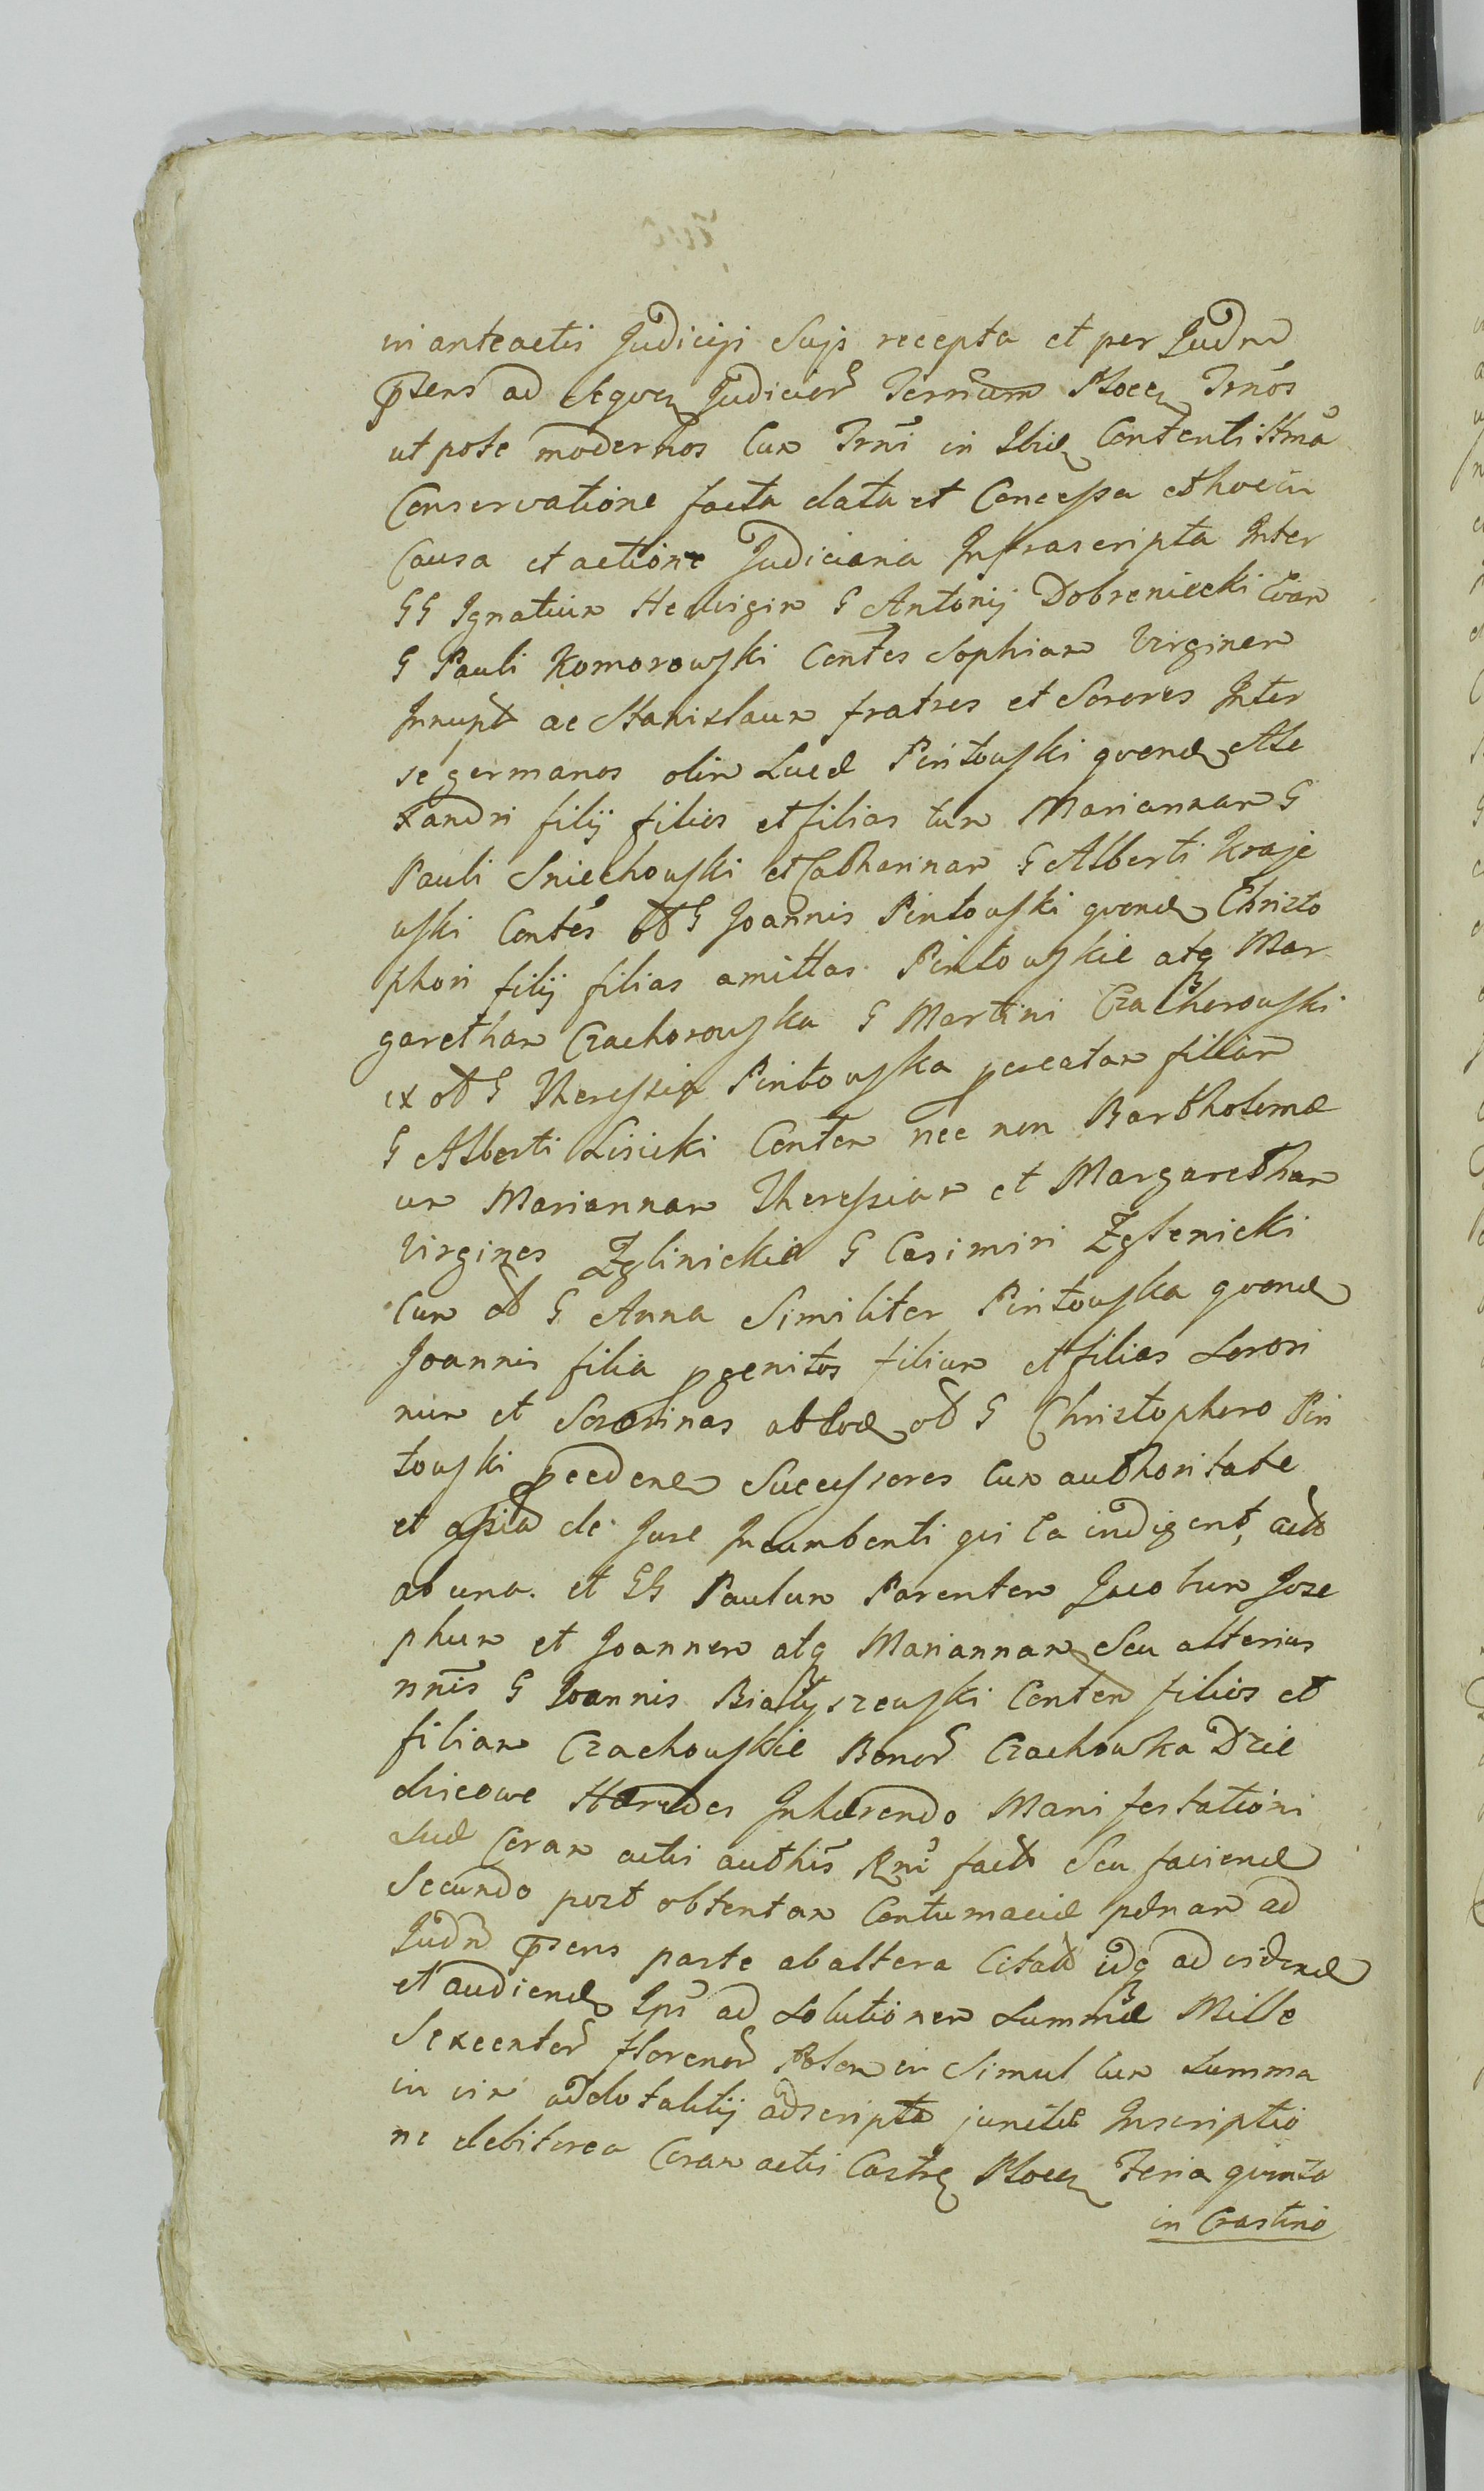 in anteactis Judicijs Sujs recepta et per Judm
pñsens ad Seqven Judicior Terrium Plocen Trmos
ut pote modernos Cum Trmi in Ibid Contenti ttma
Conservatione facta data et Concessa et hoc in
Causa et actione Judiciaria Infrascripta Inter
GG Ignatium Hedvigim G Antonij Dobreniecki Coan
G Pauli Komorowski Contes Sophiam Virginem
Innupt ac Stanislaum fratres et Sorores Inter
se germanos olim Lucæ Pintowski qvond Ale
xandri filij filios et filias tum Mariannam G
Pauli Sniechowski et Catharinam G Alberti Kraje
wski Contes ol G Joannis Pintowski qvond Christo
phori filij filias amittas Pintowskie atq Mar
garetham Czachorowska G Martini Czachorowski
ex ol G Theressia Pintowska pcreatam filiam
G Alberti Lisicki Contem nec non Bartholomæ
um Mariannam Theressiam et Margaretham
Virgines Zglinickie G Casimiri Zglenicki
Cum ol G Anna Similiter Pintowska qvond
Joannis filia pgenitos filium et filias Sorori
num et Sororinas ab ol G Christophero Pin
towski pcedend Successores Cum authoritate
et assia de Jure Incumbenti qui Ea indigent, act
ab una. et GG Paulum Parentem Jacobum Jose
phum et Joannem atq Mariannam Seu alterius
nnis G Joannis Bialyszewski Contem filios et
filiam Czachowskie Bonor Czachowka Dzie
dzicowe Hæredes Inhærendo Manifestationi
Suæ Coram actis authis Rni fact Seu faciend
Secundo post obtentam Contumaciæ pænam ad
Judm pñsens parte ab altera Citatt idq ad vidend
et audiend Ips ad Solutionem Summæ Mille
Sexcentor florenor Polon in Simul Cum Summa
in vim adotalitij adscripta junctæ Inscriptio
ne debitorea Coram actis Castren Plocen Feria quinta
in Crastino